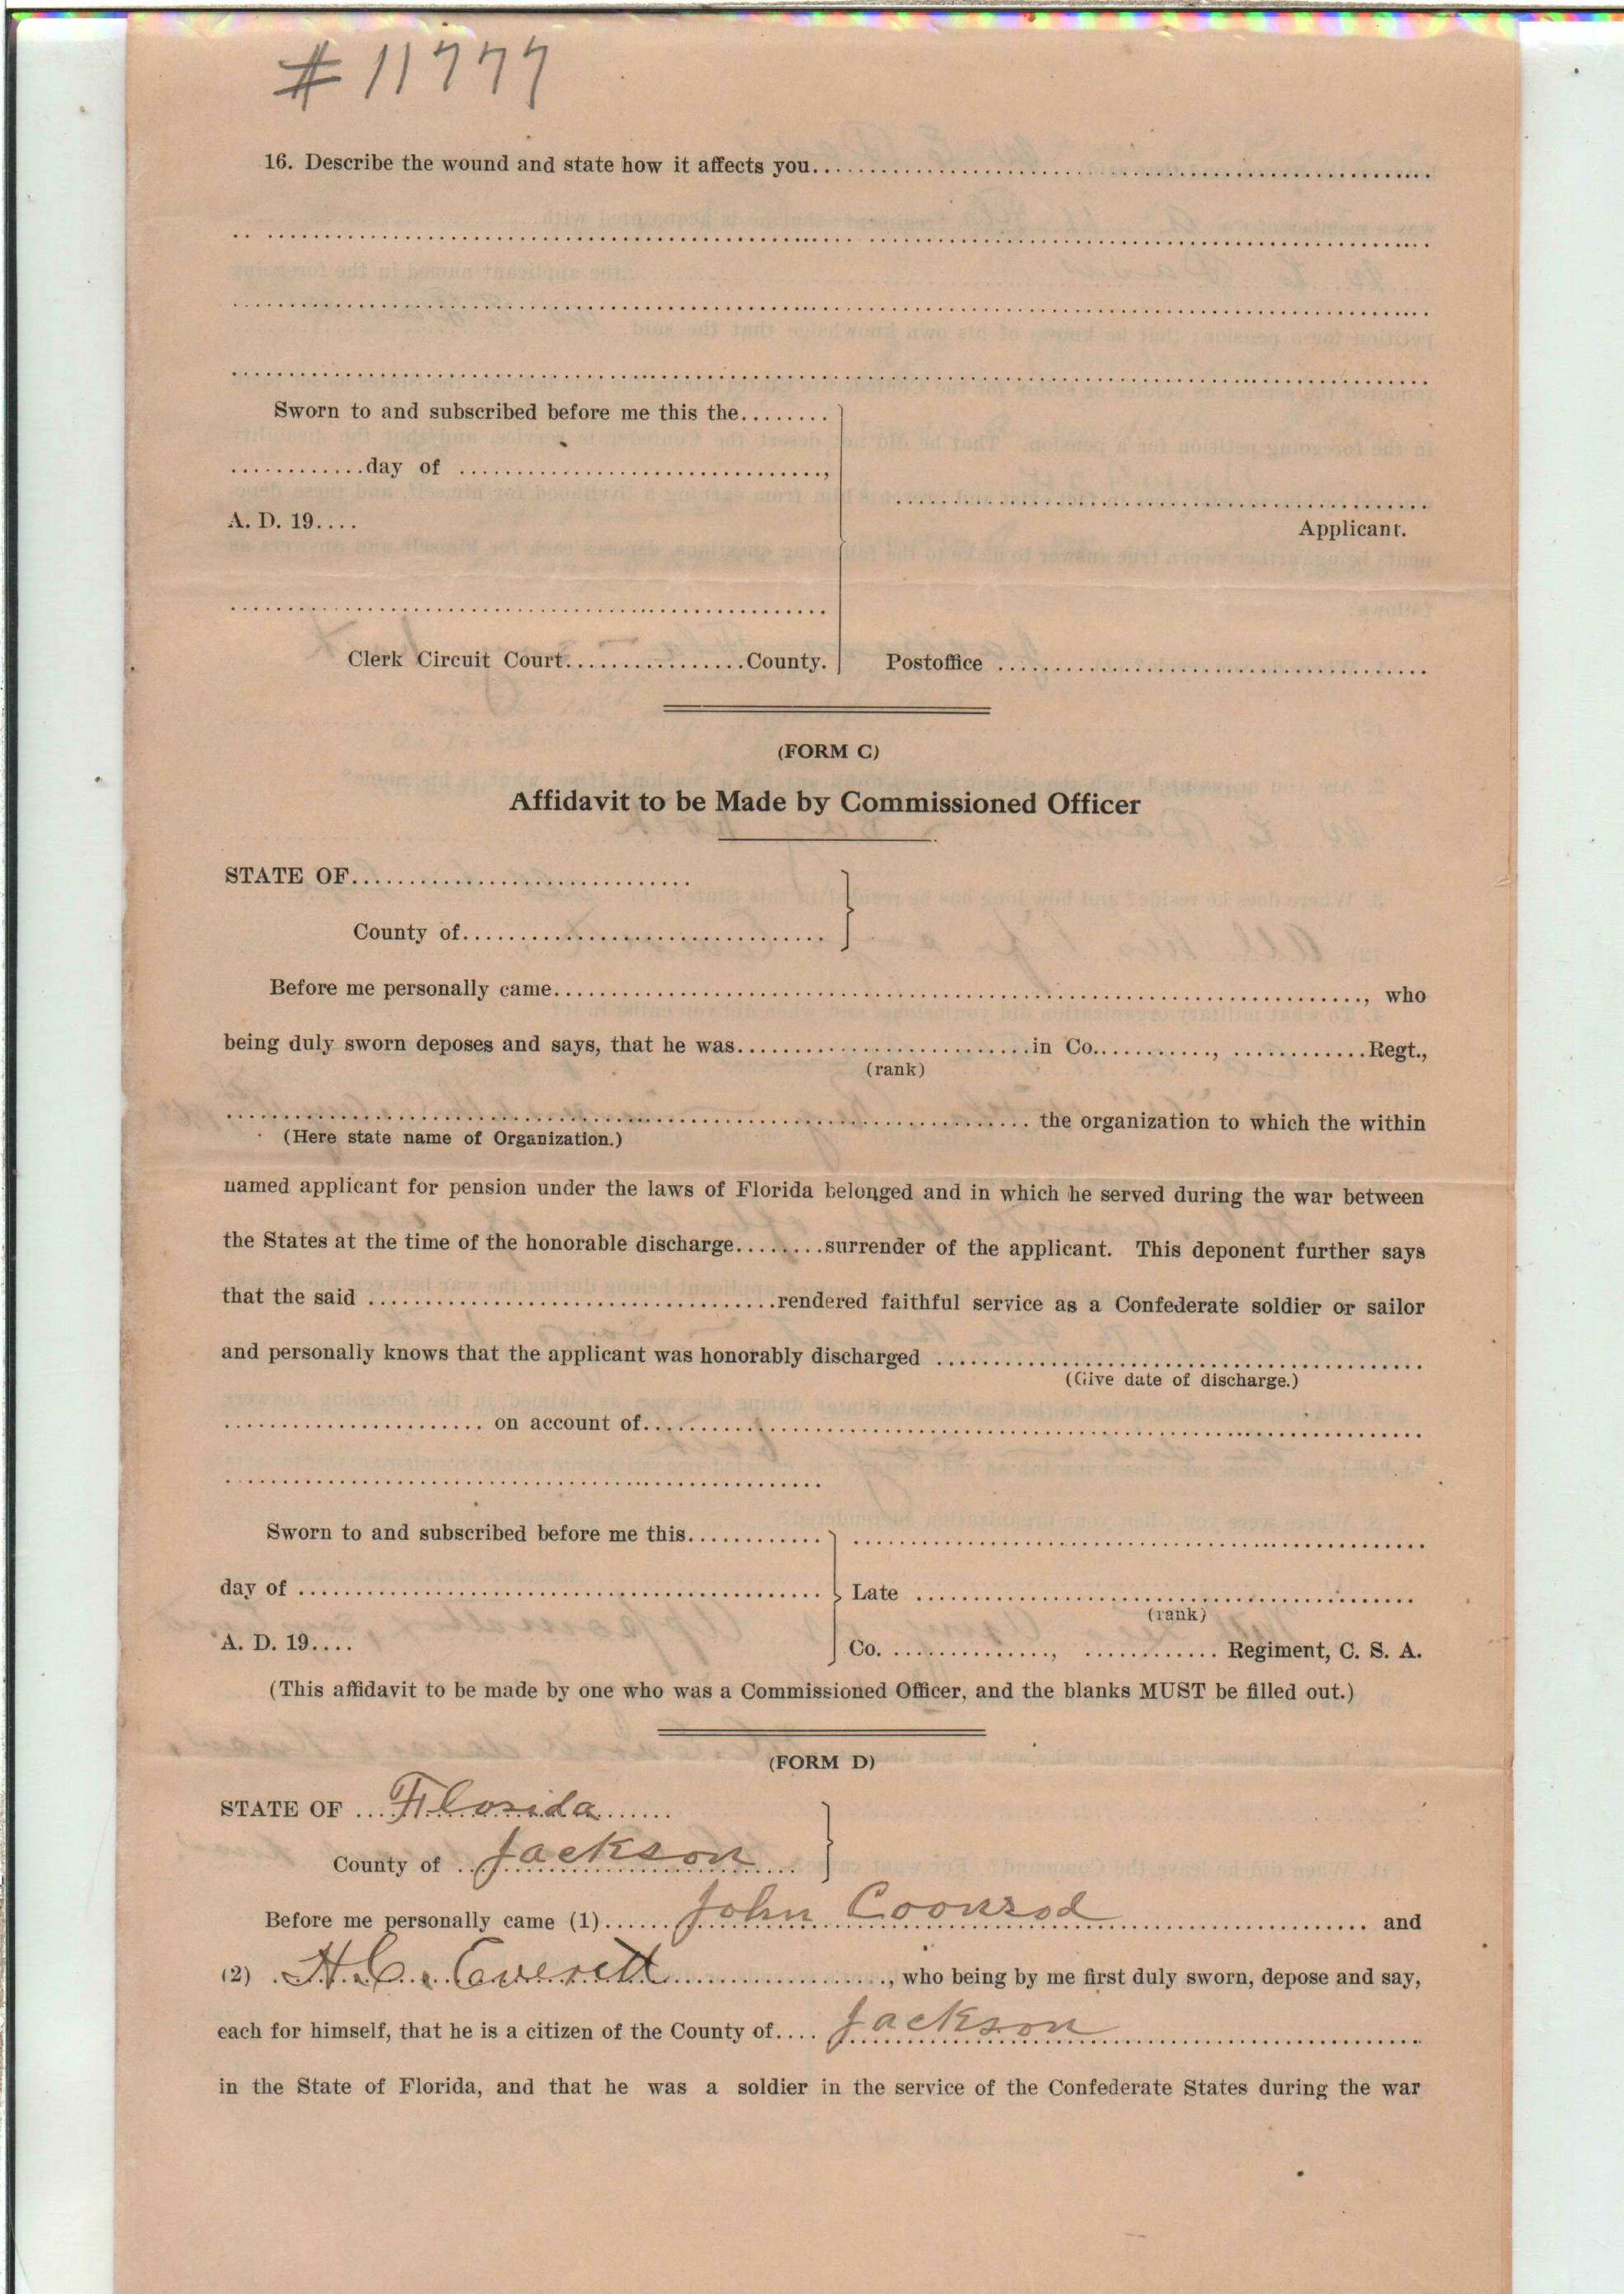 # 11777
16. Describe the wound and state how it affects you..........
Sworn to and subscribed before me this the........
............day of ..............................,
A. D. 19....
Applicant.
Clerk Circuit Court................County. Postoffice ..........
(FORM C)
Affidavit to be Made by Commissioned Officer
STATE OF..............................
County of..............................
Before me personally came.............................., who
being duly sworn deposes and says, that he was..........................in Co..........., ............Regt.,
(rank)
.............................. the organization to which the within
(Here state name of Organization.)
named applicant for pension under the laws of Florida belonged and in which he served during the war between
the States at the time of the honorable discharge........surrender of the applicant. This deponent further says
that the said ..............................rendered faithful service as a Confederate soldier or sailor
and personally knows that the applicant was honorably discharged ..............................
(Give date of discharge.)
....................... on account of..............................
Sworn to and subscribed before me this............
day of .............................. Late ..............................
(rank)
A. D. 19.... Co. .............., ............ Regiment, C. S. A.
(This affidavit to be made by one who was a Commissioned Officer, and the blanks MUST be filled out.)
(FORM D)
STATE OF ...Florida......
County of ..Jackson....
Before me personally came (1)......John Coonrod.................... and
(2) .H. C. Everett...................., who being by me first duly sworn, depose and say,
each for himself, that he is a citizen of the County of....Jackson....................
in the State of Florida, and that he was a soldier in the service of the Confederate States during the war